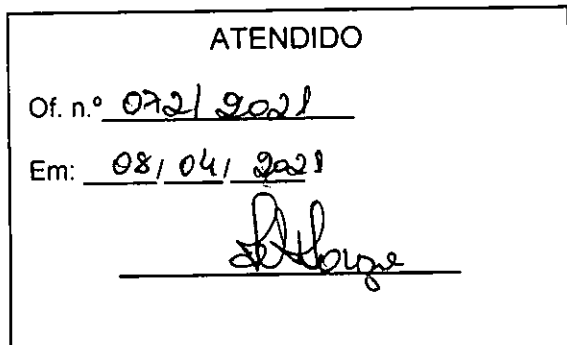 ATENDIDO
Of. n.º 072/2021
Em: 08/04/2021